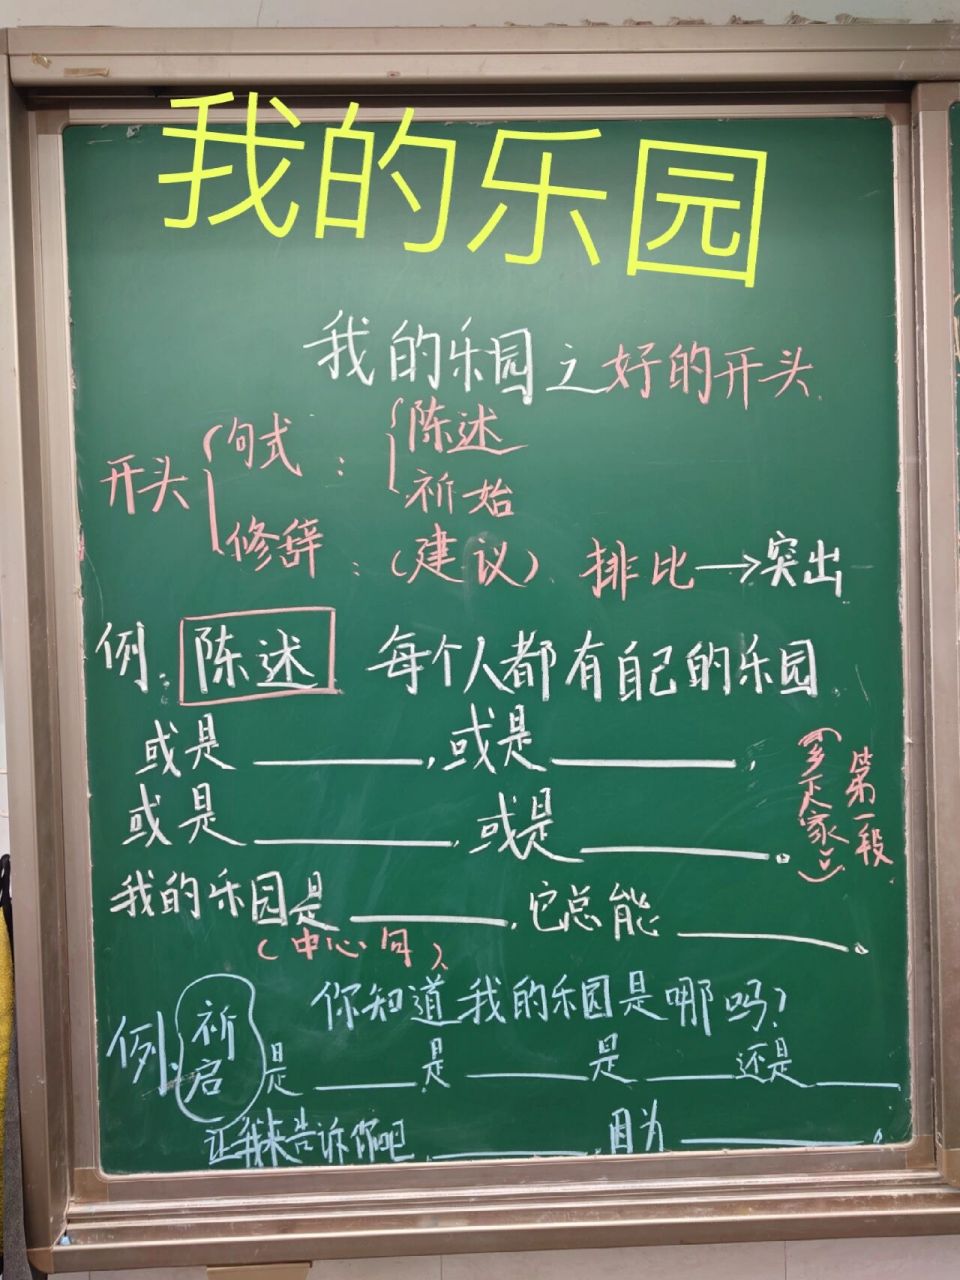 我的乐园
我的乐园之好的开头
开头 句式：陈述
祈始
修辞：（建议）排比→突出
例：陈述 每个人都有自己的乐园
或是______，或是______，
或是______，或是______。
第一段
我的乐园是______，它总能______。
（中心句）
例：祈启 你知道我的乐园是哪吗？
是____是____是____还是____
让我来告诉你吧，______，因为______。